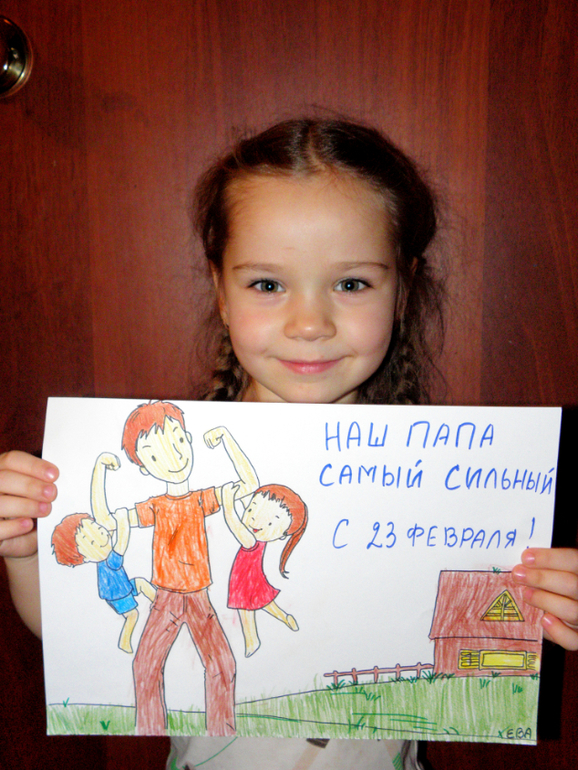 НАШ ПАПА
САМЫЙ СИЛЬНЫЙ
С 23 ФЕВРАЛЯ!
ЕВА